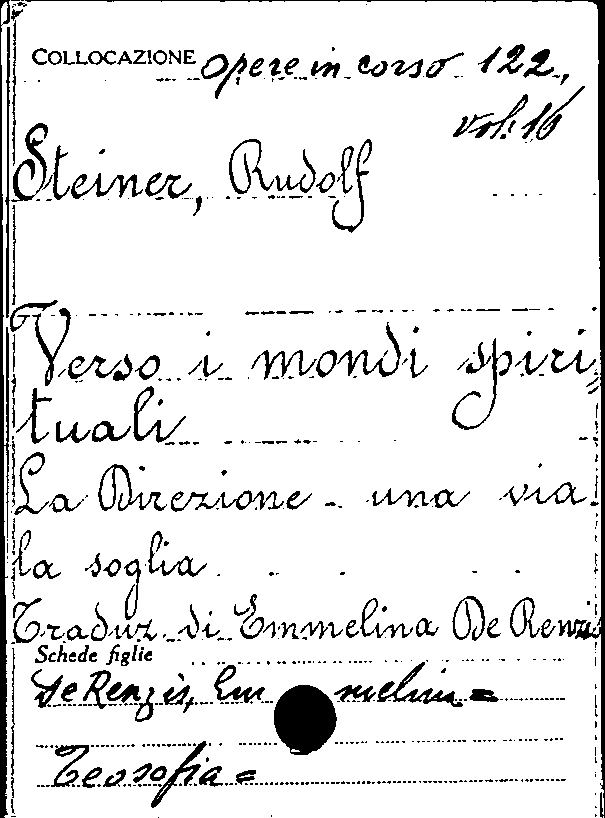 COLLOCAZIONE opere in corso 122,
vol. 16
Steiner, Rudolf
Verso i mondi spiri,,
tuali
La Direzione - una via.
la soglia
Traduz. di Emmelina De Renzis
Schede figlie
De Renzis, Emmelina =
Teosofia =